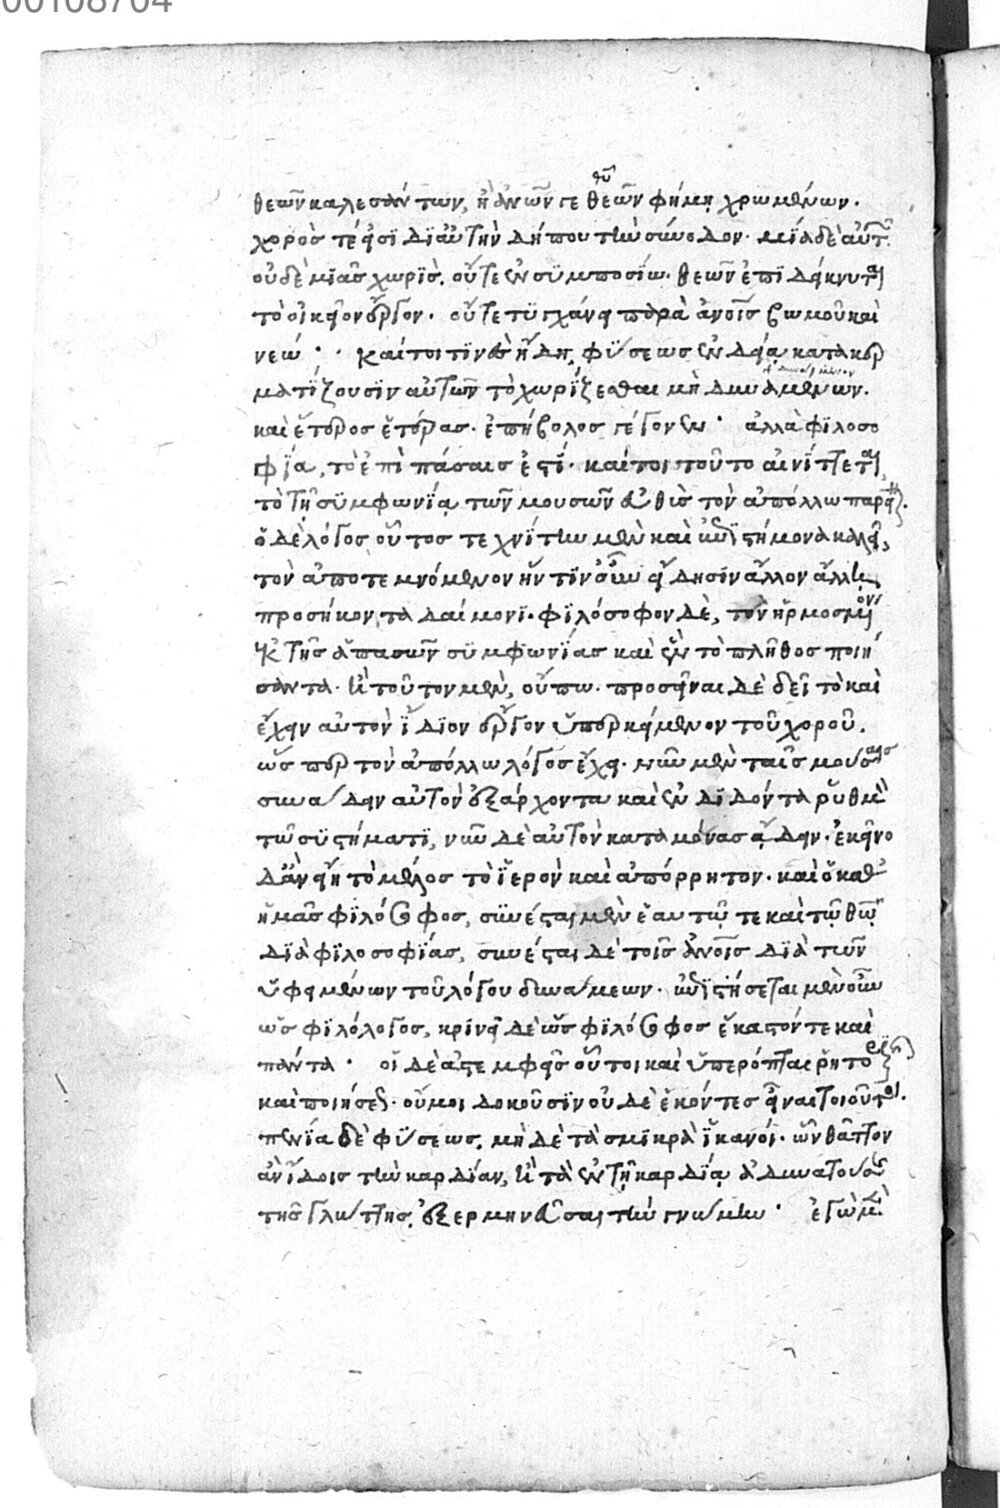 00108704
θεῶν καλεσάντων, ἢ ἀνῶν γε θεῶν φήμῃ χρωμένων.
χορὸς τέ εἰσι διαὐτὴν δήπου τὴν σύνοδον. μιᾶ δὲ αὐτ
οὐδὲ μιᾶς χωρὶς, οὔτε ἐν συμποσίω. θεῶν ἐπιδείκνυται
τὸ οἰκεῖον ἔργον. οὔτε τυγχάνει παρὰ ἀνοῖς βωμοῦ καὶ
νεώ. καίτοι τινὲς ἤδη φύσεως ἐνδείᾳ κατακερ
ματίζουσιν αὐτῶν τὸ χωρίζεσθαι μὴ δυναμένων.
καὶ ἕτερος ἑτέρας. ἐπήβολος γέγονεν. ἀλλὰ φιλοσο
φία, τὸ ἐπὶ πάσαις ἐστί. καίτοι τοῦτο αἰνίττεται,
τὸ τῆ συμφωνίᾳ τῶν μουσῶν εὐθὺς τὸν ἀπόλλω παρεῖναι.
ὁ δὲ λόγος οὗτος τεχνίτην μὲν καὶ ἐπιστήμονα καλεῖ,
τὸν ἀποτεμνόμενον ἥν τιν οὖν εἴδησιν ἄλλον ἄλλῃ
προσήκοντα δαίμονι. φιλόσοφον δὲ, τὸν ἡρμοσμένον
ἐκ τῆς ἁπασῶν συμφωνίας καὶ ἓν τὸ πλῆθος ποιή
σαντα. εἰ τοῦτον μὲν, οὔπω. προσεῖναι δὲ δεῖ τὸ καὶ
ἔχειν αὐτὸν ἴδιον ἔργον ὑπερκείμενον τοῦ χοροῦ.
ὥς περ τὸν ἀπόλλω λόγος ἔχει. νῦν μὲν ταῖς μούσαις
συνάδειν αὐτὸν ἐξάρχοντα καὶ ἐνδιδόντα ῥυθμὸν
τῶ συστήματι, νῦν δὲ αὐτὸν καταμόνας ᾄδειν. ἐκεῖνο
δἂν εἴη τὸ μέλος τὸ ἱερὸν καὶ ἀπόρρητον. καὶ ὁ καθ
ἡμᾶς φιλόσοφος, συνέσται μὲν ἑαυτῷ τε καὶ τῷ θῷ
διὰ φιλοσοφίας, συνέσται δὲ τοῖς ἀνοῖς διὰ τῶν
ὑφειμένων τοῦ λόγου δυνάμεων. ἐπιστήσεται μὲν οὖν
ὡς φιλόλογος, κρινεῖ δὲ ὡς φιλόσοφος ἕκαστόν τε καὶ
πάντα. οἱ δὲ ἀτεμφεῖς οὗτοι καὶ ὑπερόπται ῥητορικῆς
καὶ ποιήσεως. οὔ μοι δοκοῦσιν οὐδὲ ἑκόντες εἶναι τοιοῦται.
πενία δὲ φύσεως, μὴ δὲ τὰ σμικρὰ ἱκανοί. ὧν θᾶττον
ἂν ἴδοις τὴν καρδίαν, ἢ τὰ ἐν τῇ καρδίᾳ ἀδυνατούσης
τῆς γλώττης, ἐξερμηνεῦσαι τὴν γνώμην. ἐγὼ μὲν